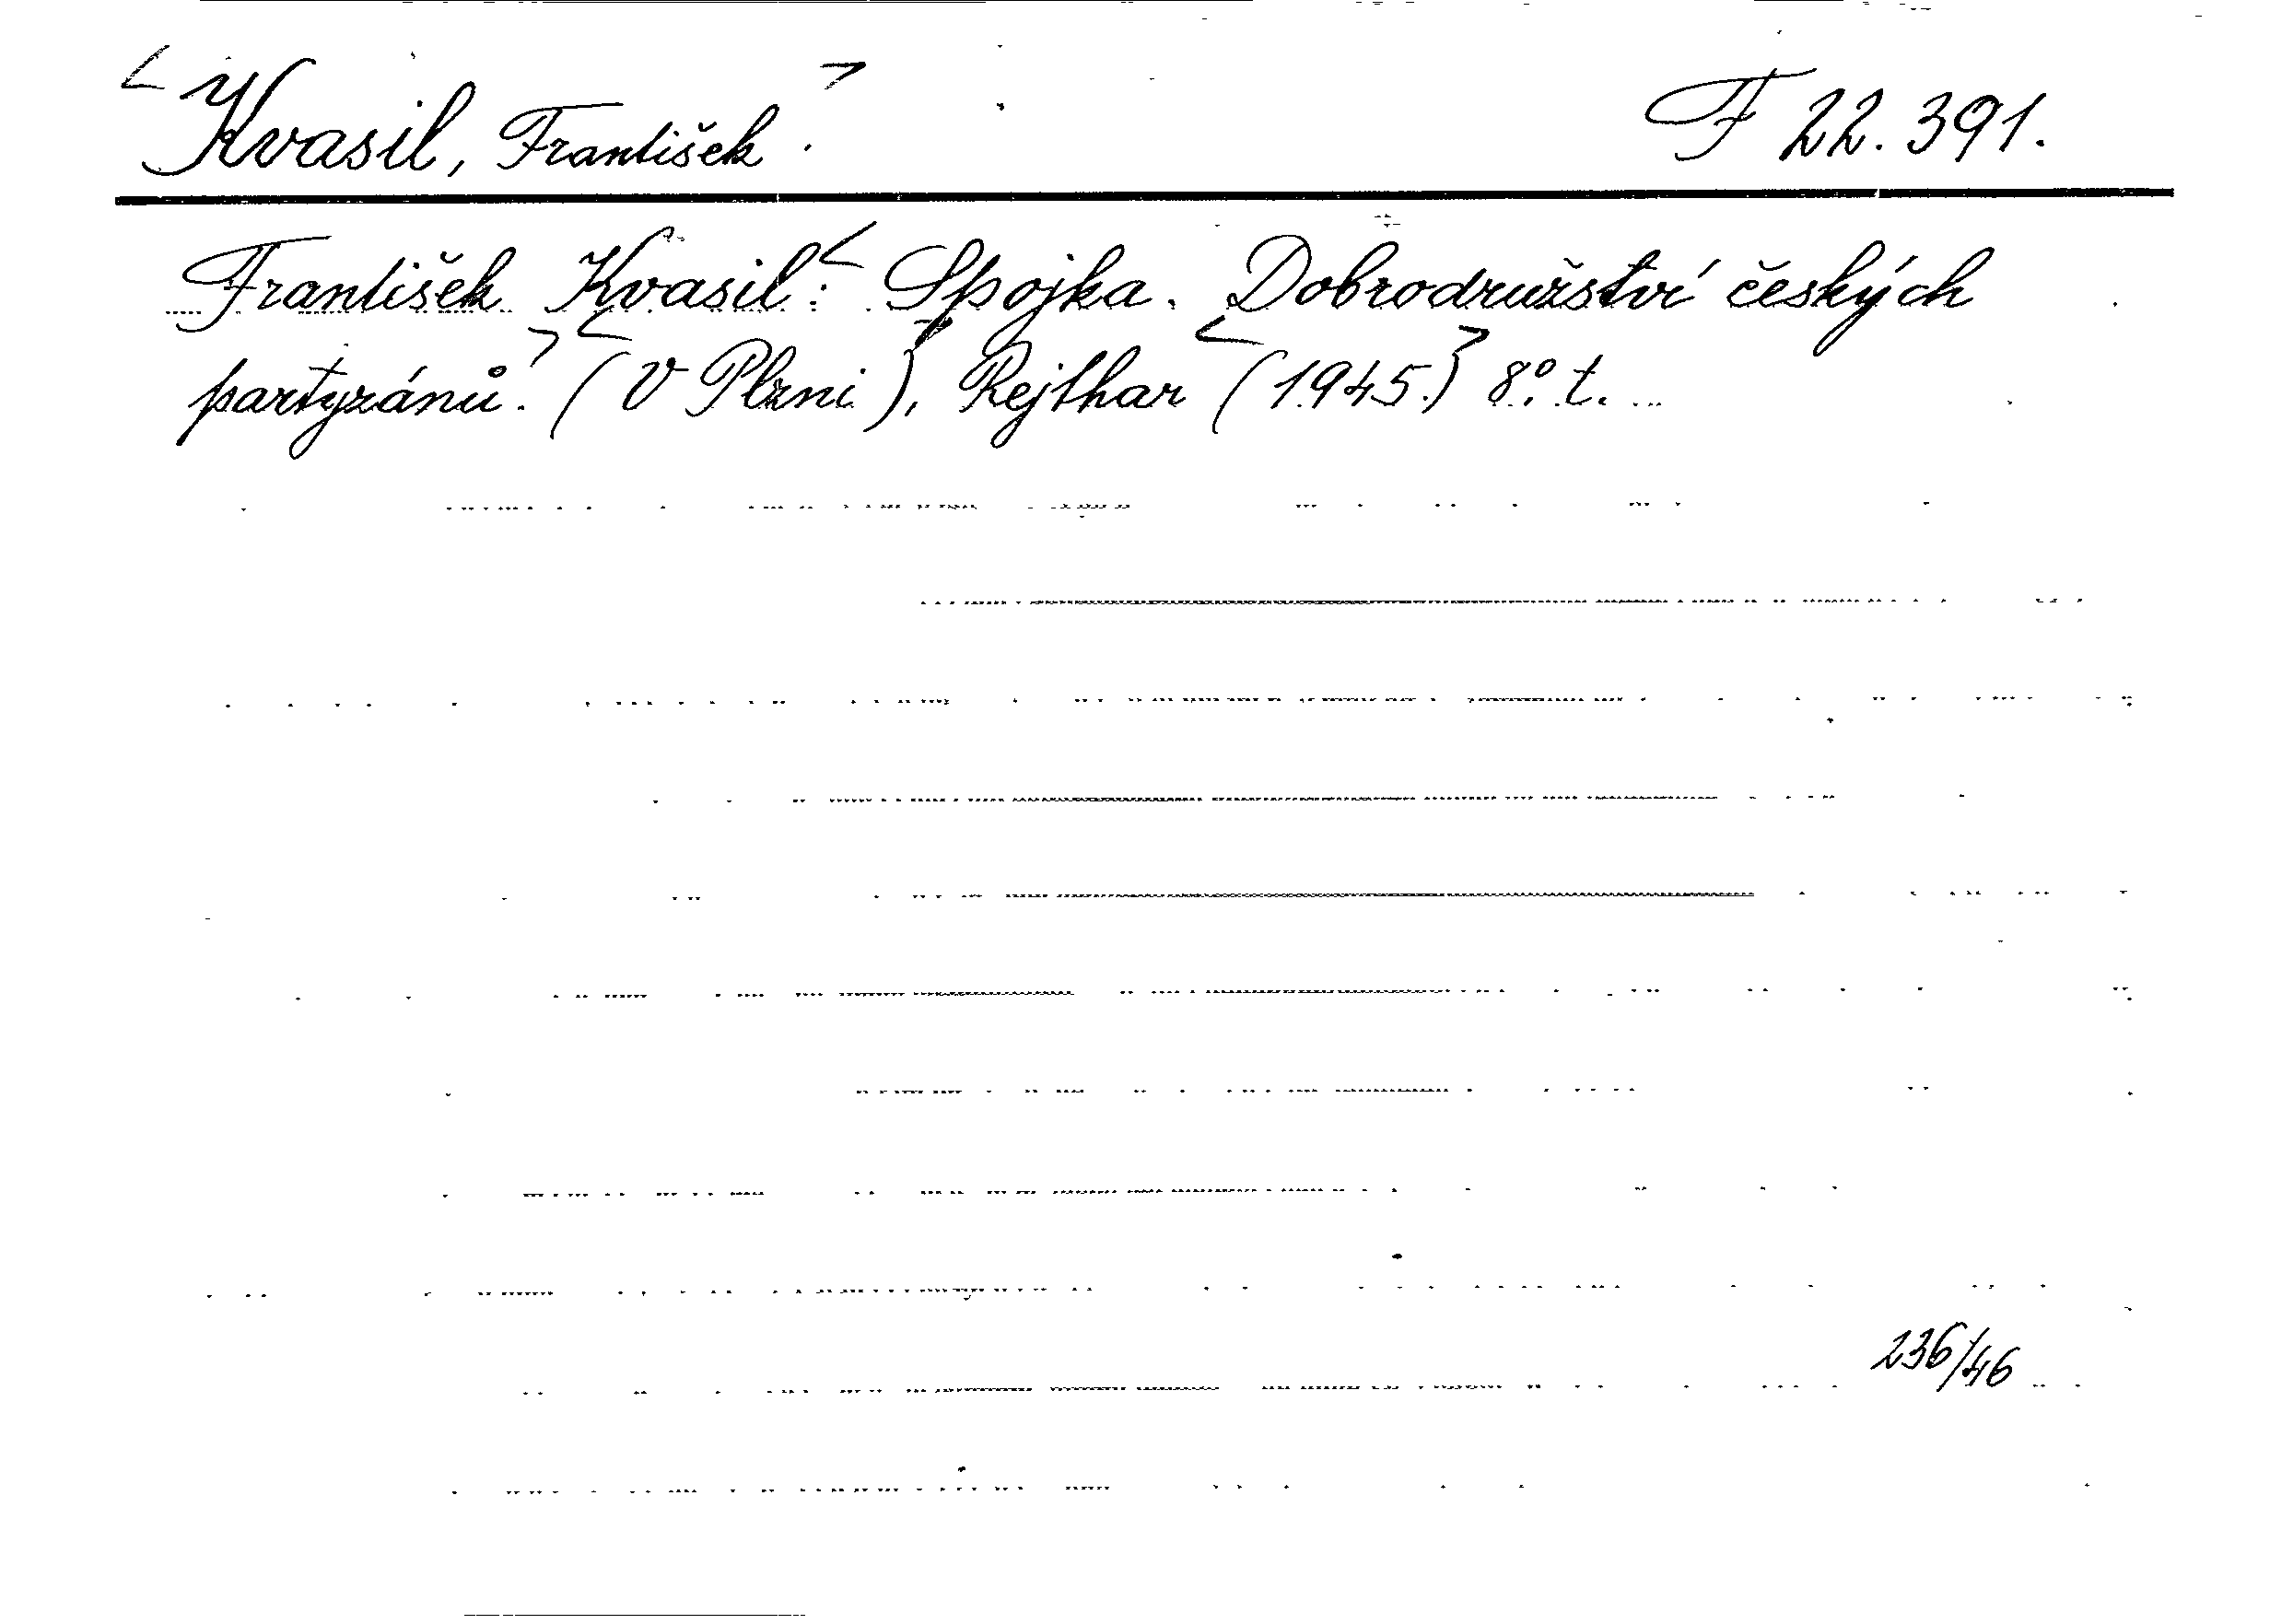 <Kvasil, František.> F 22.391.
František Kvasil: <Spojka. Dobrodružství českých
partyzánů.> <(V Plzni), Rejthar <(1945.)> 8° t.
236/46